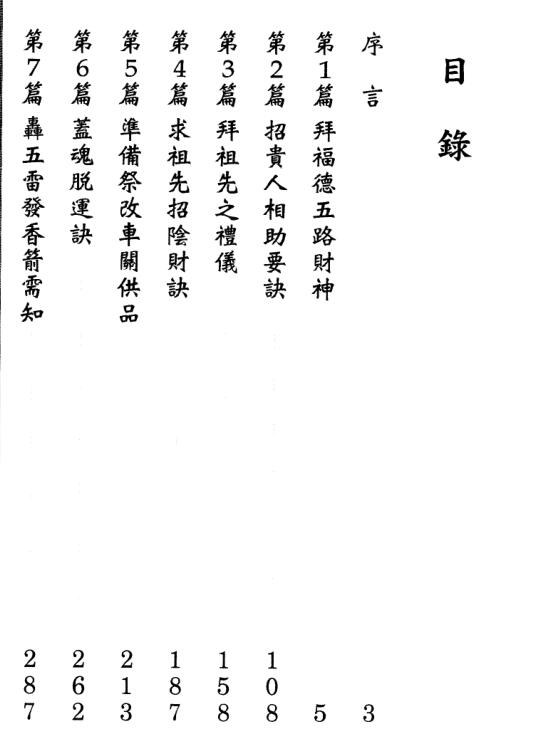 目錄
序言 3
第1篇 拜福德五路財神 5
第2篇 招貴人相助要訣 108
第3篇 拜祖先之禮儀 158
第4篇 求祖先招陰財訣 187
第5篇 準備祭改車關供品 213
第6篇 蓋魂脫運訣 262
第7篇 轟五雷發香箭需知 287